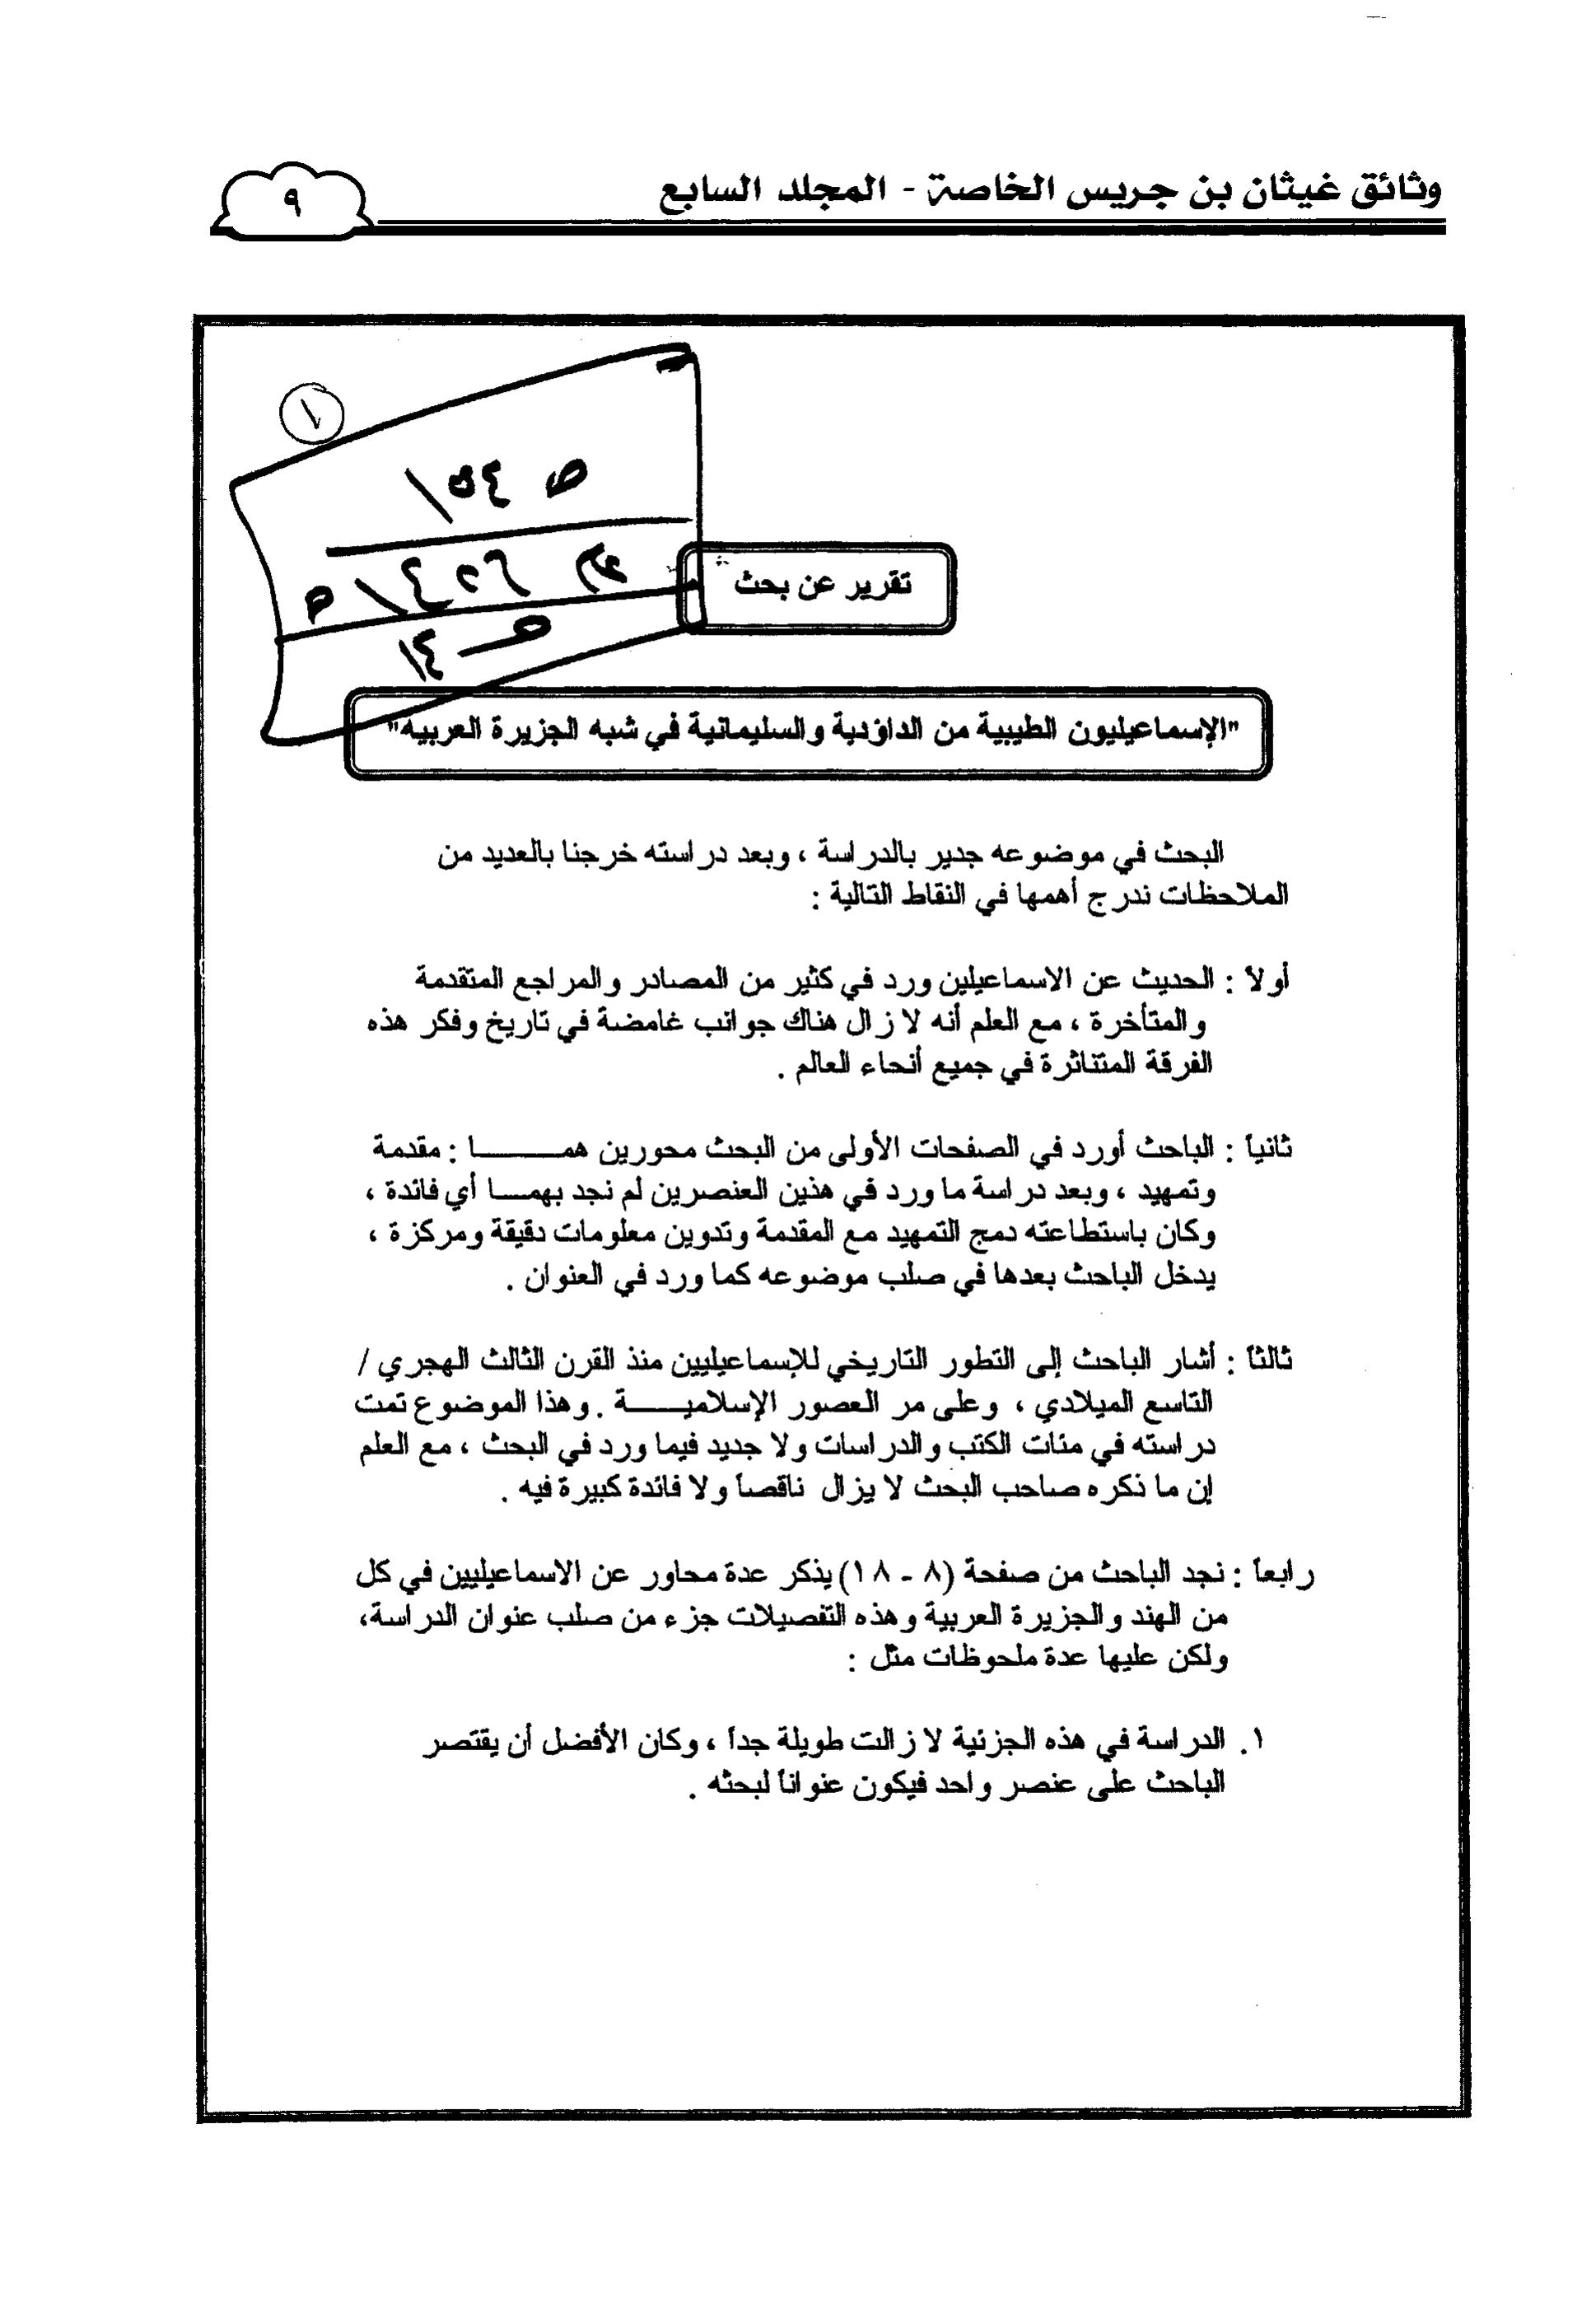 وثائق غيثان بن جريس الخاصة - المجلد السابع
٩
١
تقرير عن بحث
"الإسماعيليون الطيبية من الداؤدية والسليمانية في شبه الجزيرة العربيه"
البحث في موضوعه جدير بالدراسة ، وبعد دراسته خرجنا بالعديد من
الملاحظات ندرج أهمها في النقاط التالية :
أولاً : الحديث عن الاسماعيلين ورد في كثير من المصادر والمراجع المتقدمة
والمتأخرة ، مع العلم أنه لا زال هناك جوانب غامضة في تاريخ وفكر هذه
الفرقة المتناثرة في جميع أنحاء العالم .
ثانياً : الباحث أورد في الصفحات الأولى من البحث محورين همـــــــا : مقدمة
وتمهيد ، وبعد دراسة ما ورد في هذين العنصرين لم نجد بهمـــا أي فائدة ،
وكان باستطاعته دمج التمهيد مع المقدمة وتدوين معلومات دقيقة ومركزة ،
يدخل الباحث بعدها في صلب موضوعه كما ورد في العنوان .
ثالثاً : أشار الباحث إلى التطور التاريخي للإسماعيليين منذ القرن الثالث الهجري /
التاسع الميلادي ، وعلى مر العصور الإسلاميـــــة . وهذا الموضوع تمت
دراسته في مئات الكتب والدراسات ولا جديد فيما ورد في البحث ، مع العلم
إن ما ذكره صاحب البحث لا يزال ناقصاً ولا فائدة كبيرة فيه .
رابعاً : نجد الباحث من صفحة (٨ - ١٨) يذكر عدة محاور عن الاسماعيليين في كل
من الهند والجزيرة العربية وهذه التفصيلات جزء من صلب عنوان الدراسة،
ولكن عليها عدة ملحوظات مثل :
١. الدراسة في هذه الجزئية لا زالت طويلة جداً ، وكان الأفضل أن يقتصر
الباحث على عنصر واحد فيكون عنواناً لبحثه .